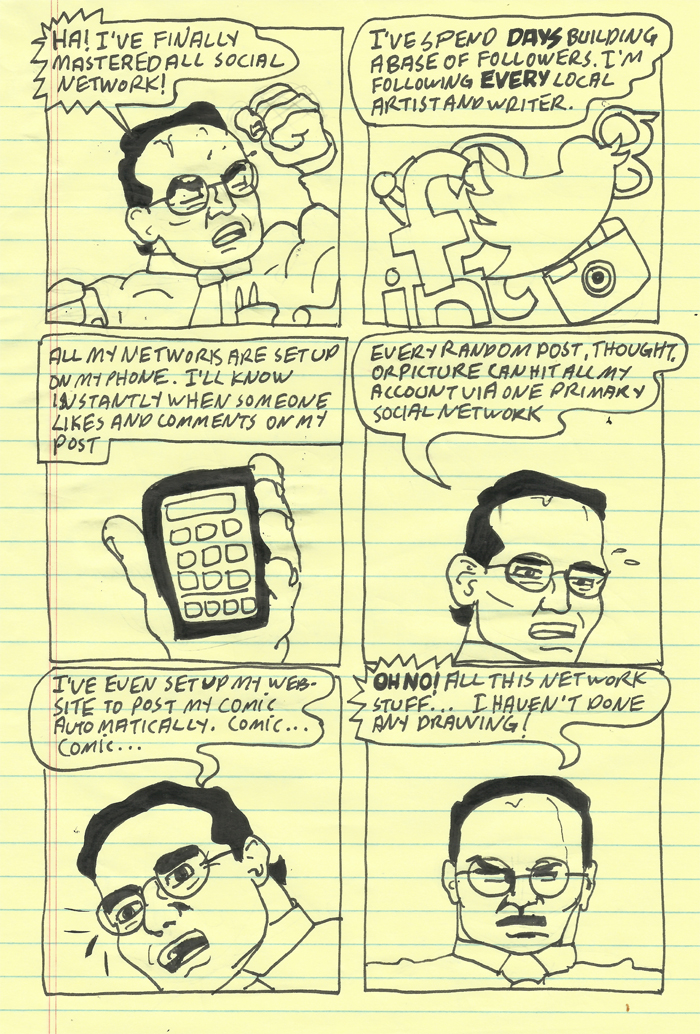 HA! I'VE FINALLY
MASTERED ALL SOCIAL
NETWORK!
I'VE SPEND DAYS BUILDING
A BASE OF FOLLOWERS. I'M
FOLLOWING EVERY LOCAL
ARTIST AND WRITER.
f
in
ALL MY NETWORKS ARE SET UP
ON MY PHONE. I'LL KNOW
INSTANTLY WHEN SOMEONE
LIKES AND COMMENTS ON MY
POST
EVERY RANDOM POST, THOUGHT,
OR PICTURE CAN HIT ALL MY
ACCOUNT VIA ONE PRIMARY
SOCIAL NETWORK
I'VE EVEN SET UP MY WEB-
SITE TO POST MY COMIC
AUTOMATICALLY. COMIC...
COMIC...
OH NO! ALL THIS NETWORK
STUFF... I HAVEN'T DONE
ANY DRAWING!